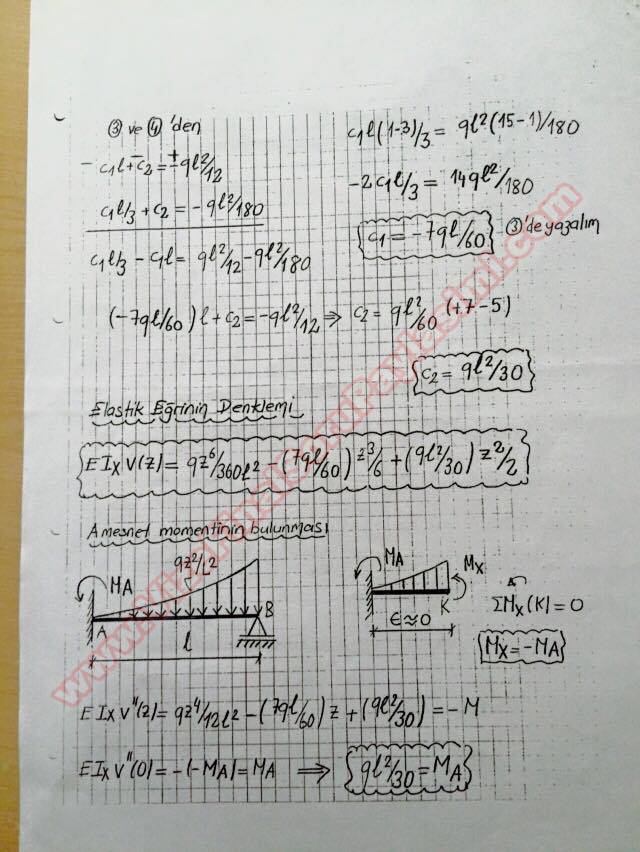 ③ ve ④ 'den
- c₁l + c₂ = ∓ ql²/12
c₁l/3 + c₂ = -ql²/180
c₁l/3 - c₁l = ql²/12 - ql²/180
c₁l(1-3)/3 = ql²(15-1)/180
-2c₁l/3 = 14ql²/180
c₁ = -7ql/60 ③'de yazalım
(-7ql/60)l + c₂ = -ql²/12 ⇒ c₂ = ql²/60 (+7-5)
c₂ = ql²/30
Elastik Eğrinin Denklemi
EIx v(z) = qz⁶/360l² - (7ql/60) z³/6 + (ql²/30) z²/2
A mesnet momentinin bulunması
qz²/L²
MA
A
B
l
MA
Mx
K
ϵ≈0
ΣMx(K) = 0
Mx = -MA
EIx v''(z) = qz⁴/12l² - (7ql/60)z + (ql²/30) = -M
EIx v''(0) = -(-MA) = MA ⇒ ql²/30 = MA